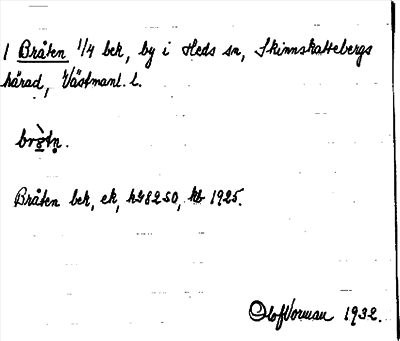 1 Bråten 1/4 bek, by i Heds sn, Skinnskattebergs
härad, Västmanl. l.
bròtn.
Bråten bek, ek, h48250, kb 1925.
Olof Vorman 1932.